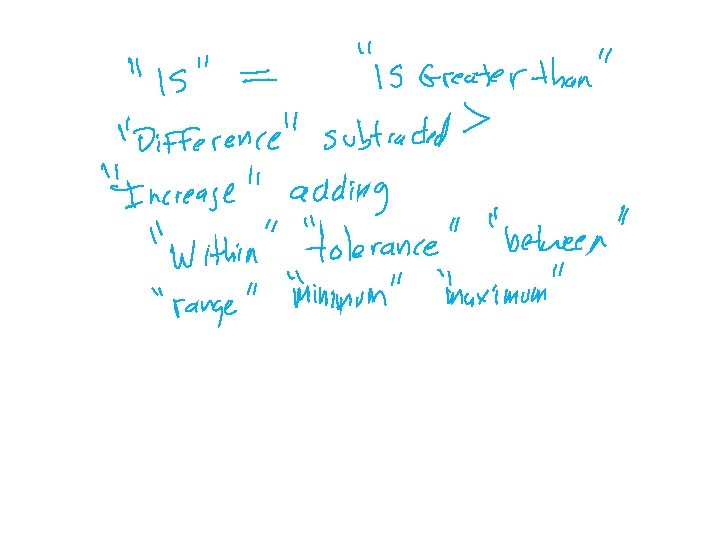 "is" = "is Greater than"
"Difference" subtracted >
"Increase" adding
"Within" "tolerance" "between"
"range" "minimum" "maximum"